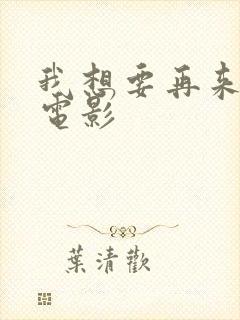 我想要再来
電影
葉清歡